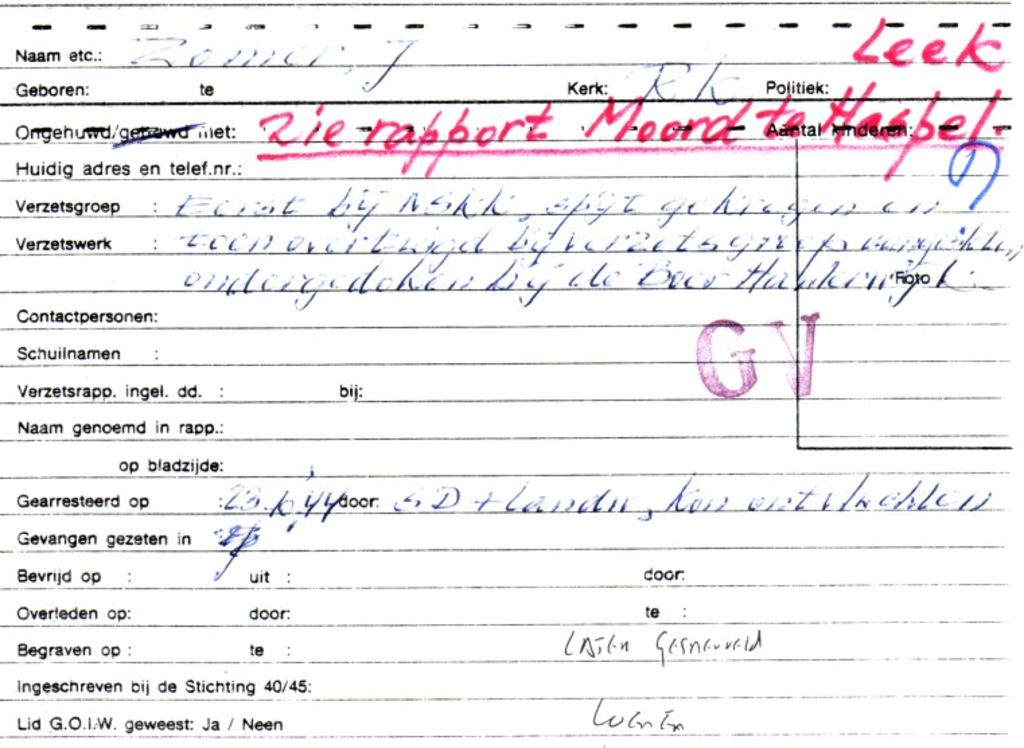 Leek
Naam etc.: Zomer, J
Geboren: te Kerk: RK Politiek:
Ongehuwd/gehuwd met: Zie rapport Moord te Haspel. Aantal kinderen:
Huidig adres en telef.nr.:
Verzetsgroep : Eerst bij NSKK, spijt gekregen en
Verzetswerk : toen overtuigd bij verzetsgroep
ondergedoken bij de Boer Haulerwijk.
Foto
Contactpersonen:
Schuilnamen :
GV
Verzetsrapp. ingel. dd. : bij:
Naam genoemd in rapp.:
op bladzijde:
Gearresteerd op : 23.6.44 door: SD + Landw, kon ontvluchten
Gevangen gezeten in
Bevrijd op : uit : door:
Overleden op: door: te :
Begraven op : te : Later gesneuveld
Ingeschreven bij de Stichting 40/45:
Lid G.O.I.W. geweest: Ja / Neen